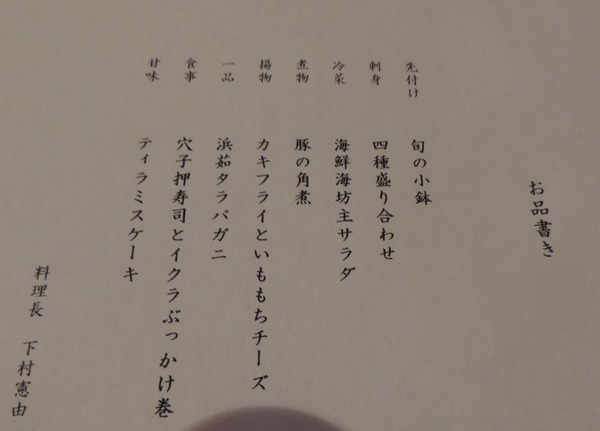 お品書き
先付け 旬の小鉢
刺身 四種盛り合わせ
冷菜 海鮮海坊主サラダ
煮物 豚の角煮
揚物 カキフライといももちチーズ
一品 浜茹タラバガニ
食事 穴子押寿司とイクラぶっかけ巻
甘味 ティラミスケーキ
料理長 下村憲由